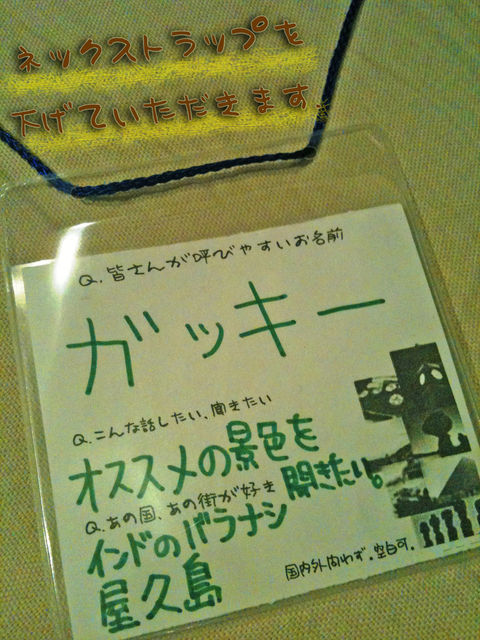 ネックストラップを
下げていただきます。
Q.皆さんが呼びやすいお名前
ガッキー
Q.こんな話したい、聞きたい
オススメの景色を
聞きたい。
Q.あの国、あの街が好き
インドのバラナシ
屋久島
国内外問わず。空白可.